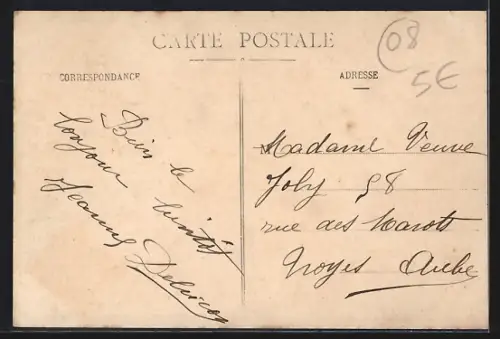 CARTE POSTALE
08
5€
CORRESPONDANCE
ADRESSE
Bien le
bonjour
Jeanne
Madame Veuve
Joly 58
rue des Marots
Troyes Aube